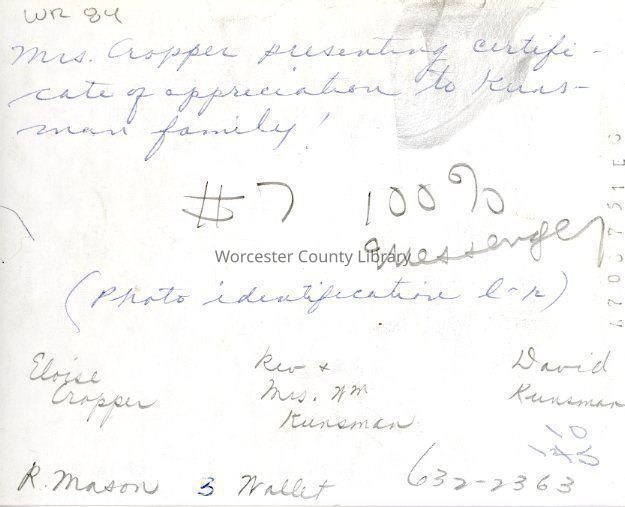 WR 84
Mrs. Cropper presenting certifi-
cate of appreciation to Kuns-
man family!
#7 100%
Messenger
Worcester County Library
(Photo identification l-r)
Eloise
Cropper
Rev &
Mrs. Wm
Kunsman
David
Kunsman
R. Mason 3 Wallet 632-2363